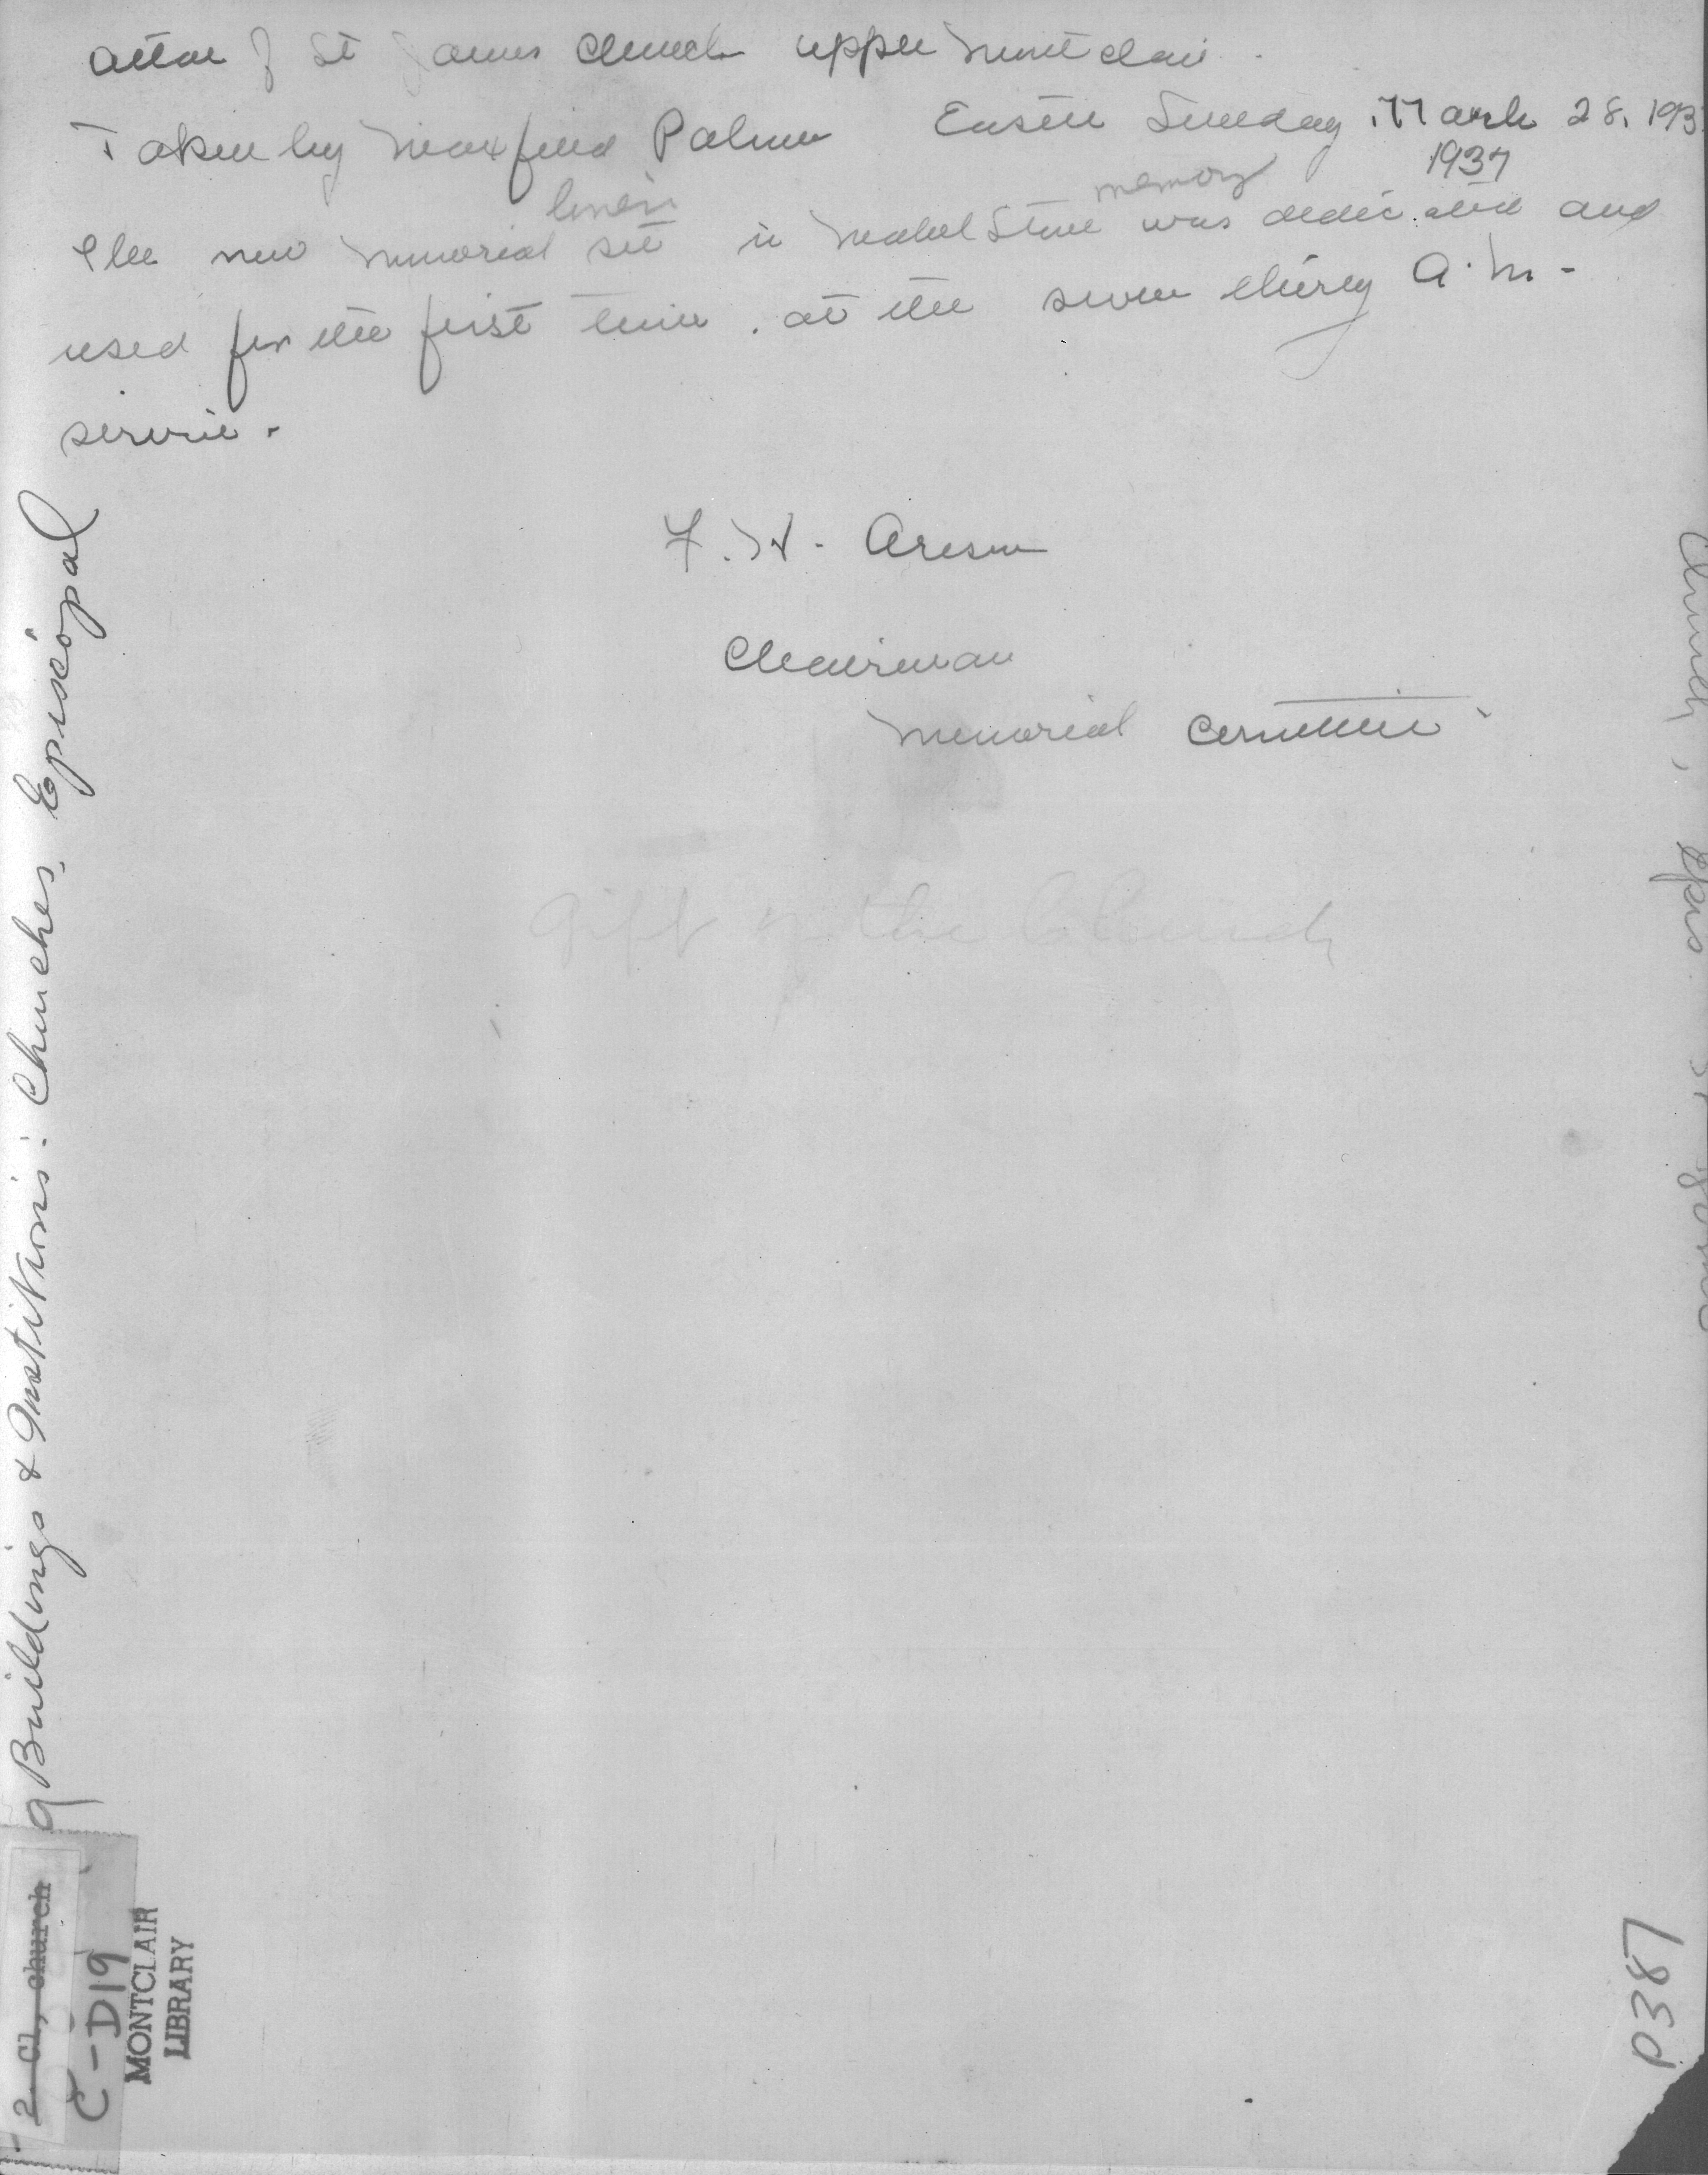 Altar of St James Church Upper Montclair.
Taken by Maxfield Palmer Easter Sunday March 28, 193
1937
linen memory
The new memorial set in Mabel Stone was dedicated and
used for the first time. at the seven thirty A.M. -
service.
F. W. Areson
Chairman
Memorial Committee
Gift of the Church
Buildings & Institutions: Churches, Episcopal
2 Cl, church
C-D19
MONTCLAIR
LIBRARY
Church, Epis. St James
P387